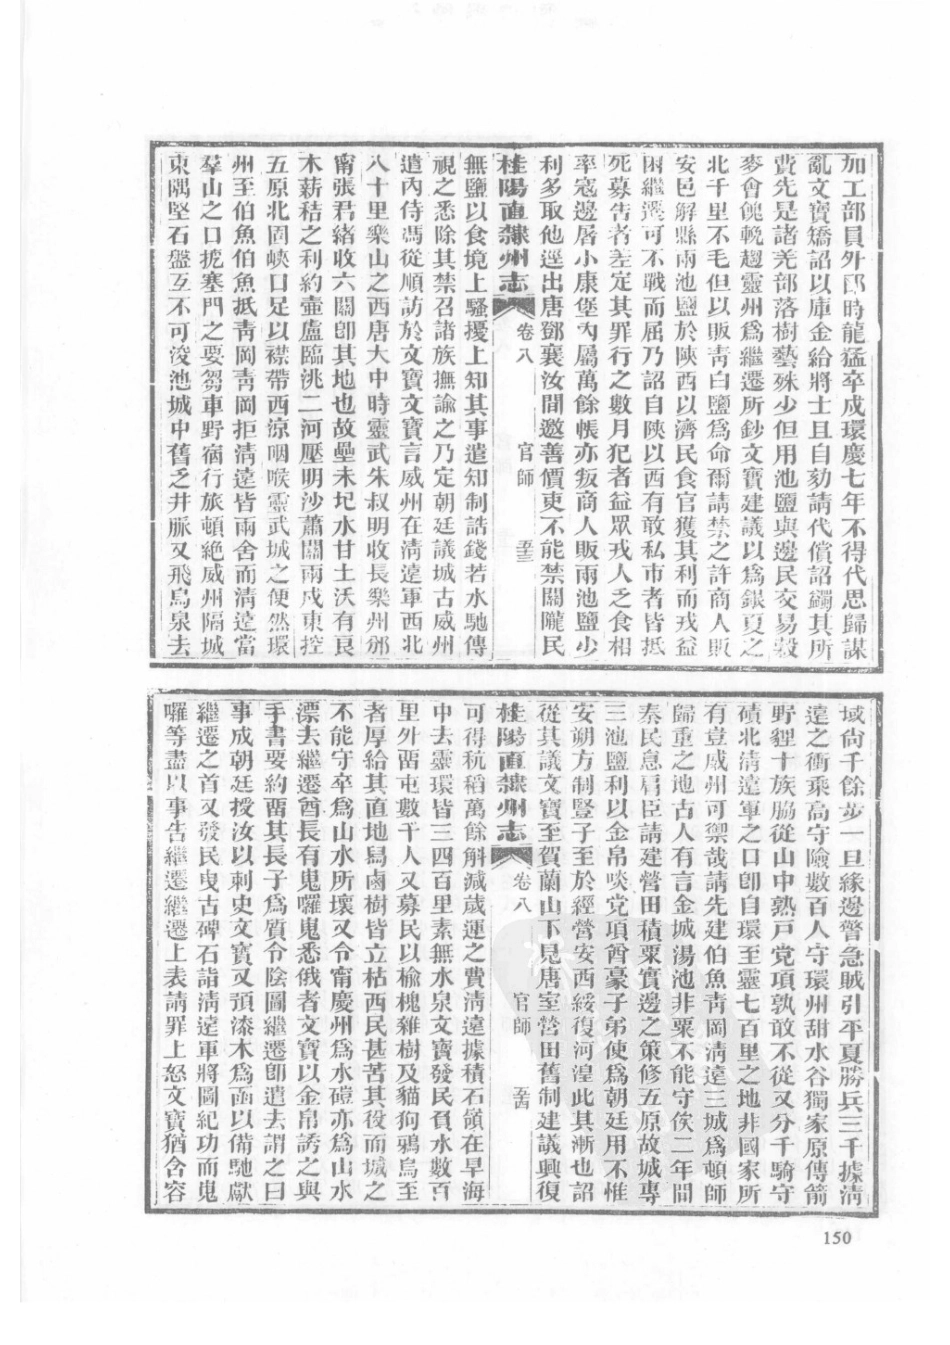 加工部員外郎時龍猛卒戍環慶七年不得代思歸謀
亂文寶矯詔以庫金給將士且自劾請代償詔蠲其所
費先是諸羌部落樹藝殊少但用池鹽與邊民交易穀
麥會餽輓趨靈州爲繼遷所鈔文寶建議以爲銀夏之
北千里不毛但以販靑白鹽爲命爾請禁之許商人販
安邑解縣兩池鹽於陝西以濟民食官獲其利而戎益
困繼遷可不戰而屈乃詔自陝以西有敢私市者皆抵
死募告者差定其罪行之數月犯者益眾戎人乏食相
率寇邊屠小康堡內屬萬餘帳亦叛商人販兩池鹽少
利多取他逕出唐鄧襄汝間邀善價吏不能禁關隴民
桂陽直隸州志 卷八 官師 五三
無鹽以食境上騷擾上知其事遣知制誥錢若水馳傳
視之悉除其禁召諸族撫諭之乃定朝廷議城古威州
遣內侍馮從順訪於文寶文寶言威州在清遠軍西北
八十里樂山之西唐大中時靈武朱叔明收長樂州邠
甯張君緒收六關卽其地也故壘未圮水甘土沃有良
木薪秸之利約壷盧臨洮二河壓明沙蕭關兩戍東控
五原北固峽口足以襟帶西涼咽喉靈武城之便然環
州至伯魚伯魚抵靑岡靑岡拒清遠皆兩舍而清遠當
羣山之口扼塞門之要芻車野宿行旅頓絶威州隔城
東隅堅石盤互不可浚池城中舊乏井脈又飛烏泉去
城尙千餘步一旦緣邊警急賊引平夏勝兵三千據清
遠之衝乘高守險數百人守環州甜水谷獨家原傳箭
野貍十族脇從山中熟戶党項孰敢不從又分千騎守
磧北清遠軍之口卽自環至靈七百里之地非國家所
有豈威州可禦哉請先建伯魚靑岡清遠三城爲頓師
歸重之地古人有言金城湯池非粟不能守俟二年間
秦民息肩臣請建營田積粟實邊之策修五原故城專
三池鹽利以金帛啖党項酋豪子弟使爲朝廷用不惟
安朔方制豎子至於經營安西綏復河湟此其漸也詔
從其議文寶至賀蘭山下見唐室營田舊制建議興復
桂陽直隸州志 卷八 官師 五四
可得秔稻萬餘斛減歲運之費清遠據積石嶺在旱海
中去靈環皆三四百里素無水泉文寶發民負水數百
里外畱屯數千人又募民以榆槐雜樹及貓狗鴉烏至
者厚給其直地舄鹵樹皆立枯西民甚苦其役而城之
不能守卒爲山水所壞又令甯慶州爲水磑亦爲山水
漂去繼遷酋長有嵬囉嵬悉俄者文寶以金帛誘之與
手書要約畱其長子爲質令陰圖繼遷卽遣去謂之曰
事成朝廷授汝以刺史文寶又預漆木爲函以備馳獻
繼遷之首又發民曳古碑石詣清遠軍將圖紀功而嵬
囉等盡以事告繼遷繼遷上表請罪上怒文寶猶含容
150